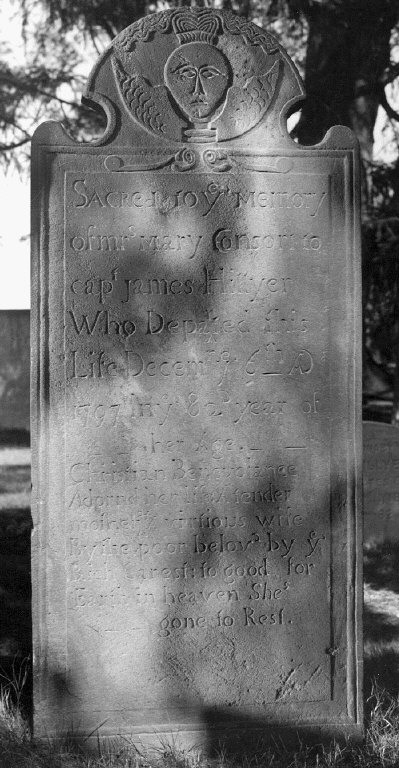 Sacred to yᵉ Memory
of mrˢ Mary Consort to
capᵗ James Hillyer
Who Departed this
Life Decemʳ yᵉ 6ᵗʰ AD
1797 in yᵉ year of
her Age.
Christian Benevolence
Adornd her life a tender
mother & virtious wife
By the poor belovᵈ by yᵉ
carest: to good for
Earth in heaven Sheˢ
gone to Rest.